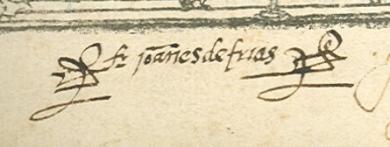 fr joãnes de frias